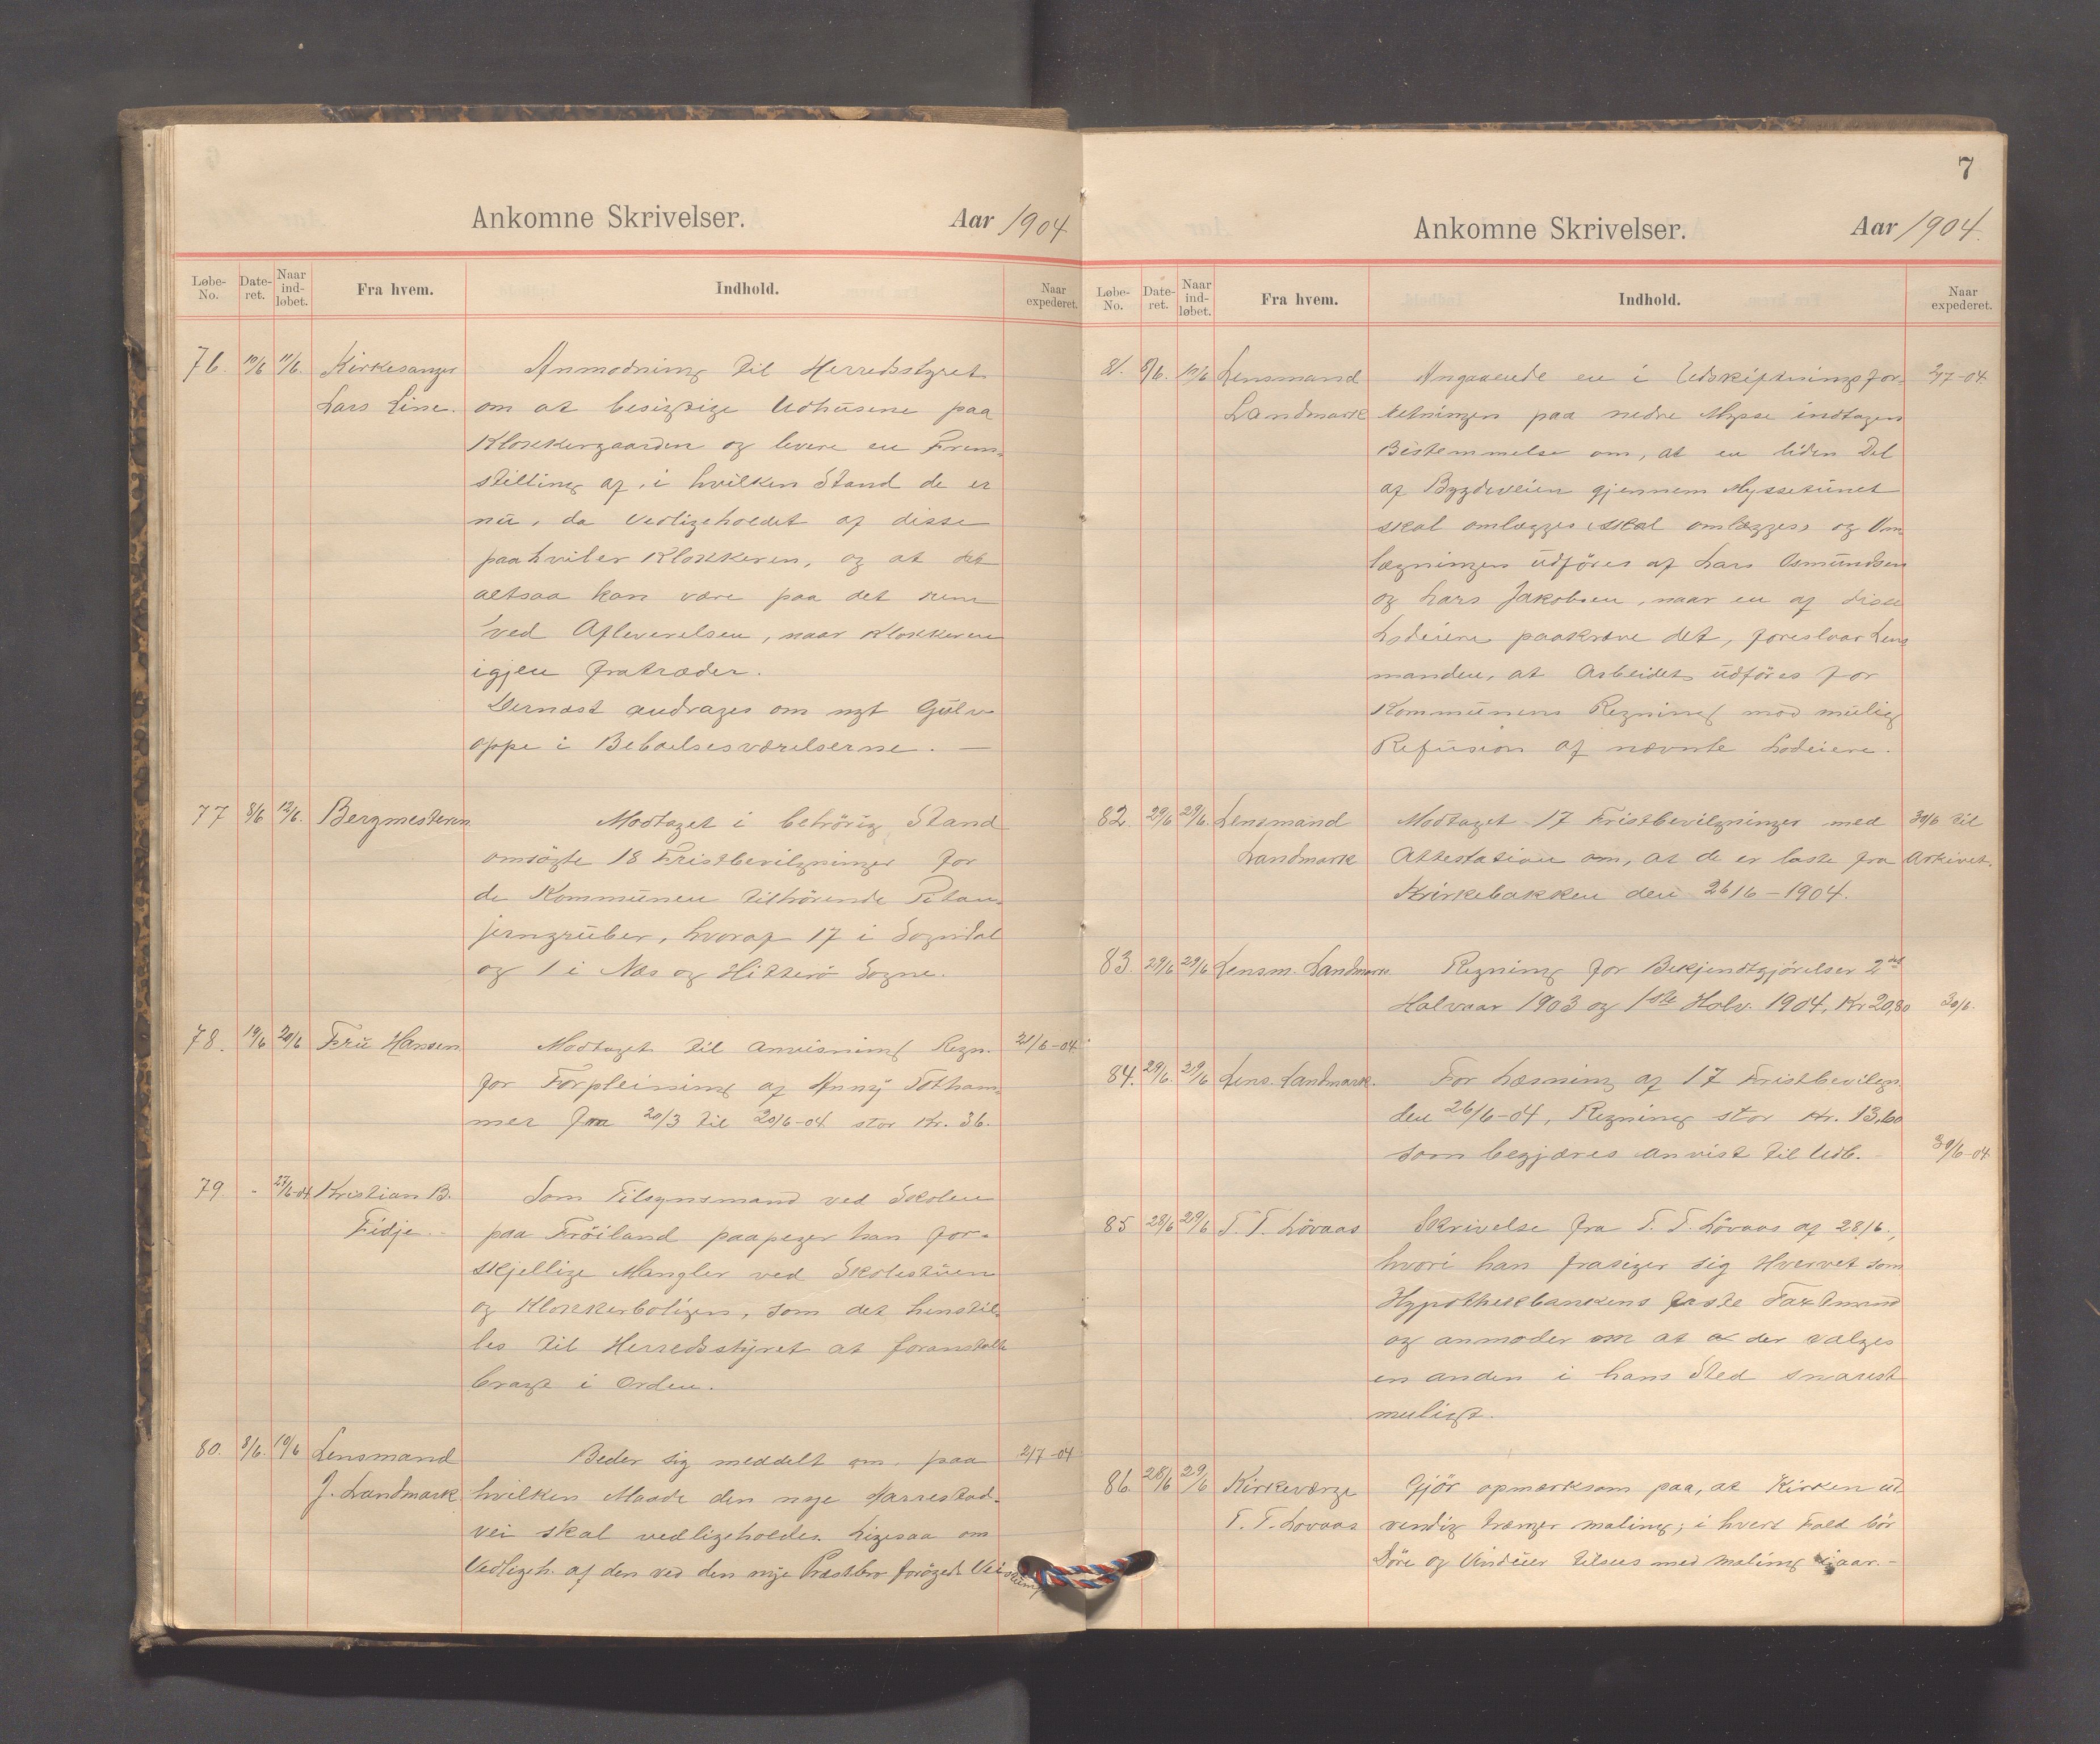 Ankomne Skrivelser. Aar 1904
Løbe-No. Date-ret. Naar ind-løbet. Fra hvem. Indhold. Naar expederet.
76. 10/6 11/6. Kirkesanger Anmodning til Herredsstyret
Lars Line. om at besigtige Udhusene paa
Klokkergaarden og levere en Frem-
stilling af, i hvilken Stand de er
nu, da Vedligeholdet af disse
paahviler Klokkeren, og at det
altsaa kan være paa det rene
ved Afleverelsen, naar Klokkeren
igjen fratræder.
Dernæst andrages om nyt Gulv
oppe i Beboelsesværelserne. —
77 8/6 12/6. Bergmesteren Modtaget i behörig Stand
omsögte 18 Fristbevilgninger for
de Kommunen tilhörende Titan-
jerngruber, hvoraf 17 i Sogndal
og 1 i Nes og Hitterö Sogne.
78. 19/6 20/6 Fru Hansen Modtaget til anvisning Regn. 21/6-04
for Forpleining af Anny Totham-
mer fra 20/3 til 20/6-04 stor Kr. 36.
79 - 27/6-04 Kristian B. Som Tilsynsmand ved Skolen
Fidje. paa Fröiland paapeger han for-
skjellige Mangler ved Skolestuen
og Klokkerboligen, som det henstil-
les til Herredsstyret at foranstalte
bragt i Orden.
80. 8/6. 10/6 Lensmand Beder sig meddelt om paa 2/7-04
J. Landmark hvilken Maade den nye Aarrestad-
vei skal vedligeholdes. Ligesaa om
Vedligeh. af den ved den nye Præstbro forögede Veistump
7
Ankomne Skrivelser. Aar 1904.
Løbe-No. Date-ret. Naar ind-løbet. Fra hvem. Indhold. Naar expederet.
81. 8/6. 10/6 Lensmand Angaaende en i Udskiftningsfor- 2/7-04
Landmark retningen paa nedre Mysse indtagen
Bestemmelse om, at en liden Del
af Bygdeveien gjennem Myssetunet
skal omlægges (skal omlægges) og Om-
lægningen udföres af Lars Osmundsen
og Lars Jakobsen, naar en af disse
Lodeiere paakræve det, foreslaar Lens-
manden, at Arbeidet udföres for
Kommunens Regning mod mulig
Refusion af nævnte Lodeiere.
82. 29/6 29/6. Lensmand Modtaget 17 Fristbevilgninger med 30/6 til
Landmark Attestation om, at de er læste fra Arkivet.
Kirkebakken den 26/6-1904.
83. 29/6 29/6 Lensm. Landmark Regning for Bekjendtgjörelser 2det
Halvaar 1903 og 1ste Halv. 1904, Kr 20,80 30/6.
84. 29/6. 29/6 Lens. Landmark. For Læsning af 17 Fristbevilgn.
den 26/6-04, Regning stor Kr. 13,60
som begjæres anvist til Udb. 30/6-04
85 28/6 29/6 T. T. Lövaas Skrivelse fra T. T. Lövaas af 28/6.,
hvori han frasiger sig Hvervet som
Hypothekbankens faste Taxtmand
og anmoder om at der vælges
en anden i hans Sted snarest
muligt.
86. 28/6 29/6 Kirkeværge Gjör opmærksom paa, at Kirken ud-
T. T. Lovaas vendig trænger maling; i hvert Fald bör
Döre og Vinduer tilsees med Maling iaar.-